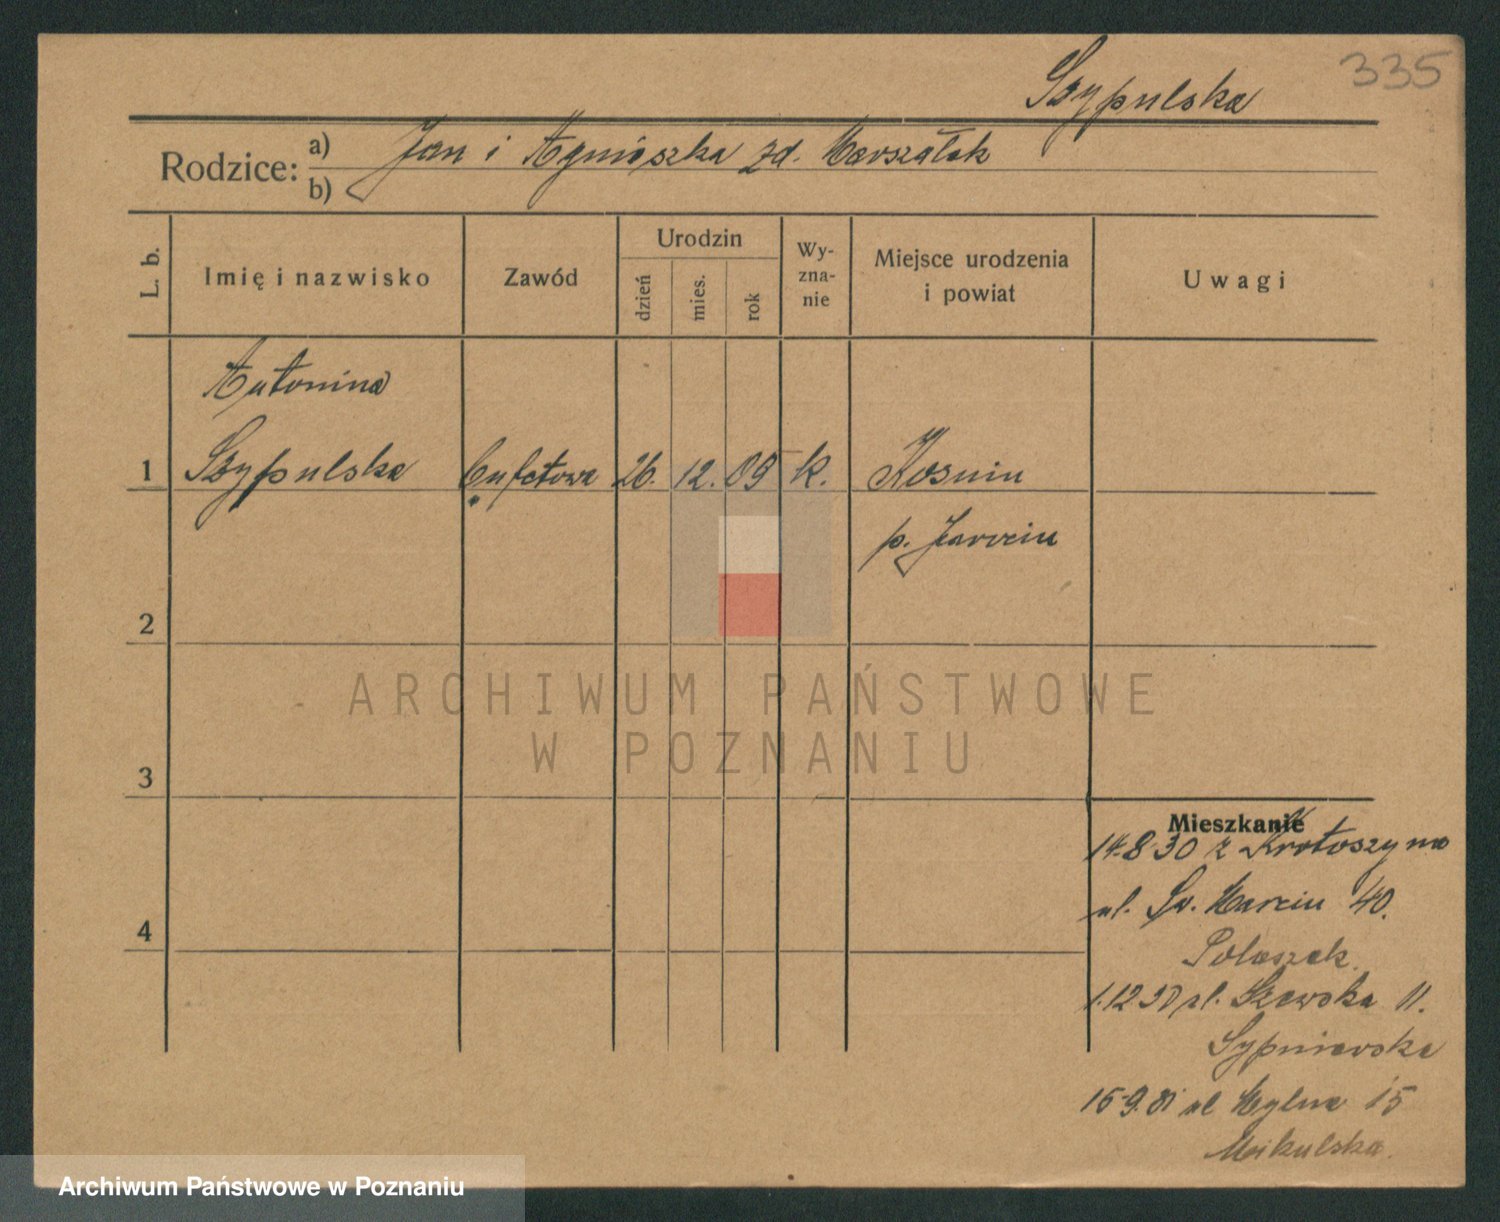 335
Szypulska
Rodzice: a) Jan i Agnieszka zd. Marszałek
b)
L. b.
Imię i nazwisko
Zawód
Urodzin
dzień
mies.
rok
Wy-
zna-
nie
Miejsce urodzenia
i powiat
Uwagi
Antonina
1 Szypulska bufetowa 26. 12. 09 k.
p. Jarocin
2
3
4
Mieszkanie
14.8.30 z Krotoszyna
ul. Św. Marcin 40.
1.12 ul. Szewska 11.
Sypniewska
15.9.31 ul Mylna 15
Mikulska.
ARCHIWUM PAŃSTWOWE
W POZNANIU
Archiwum Państwowe w Poznaniu